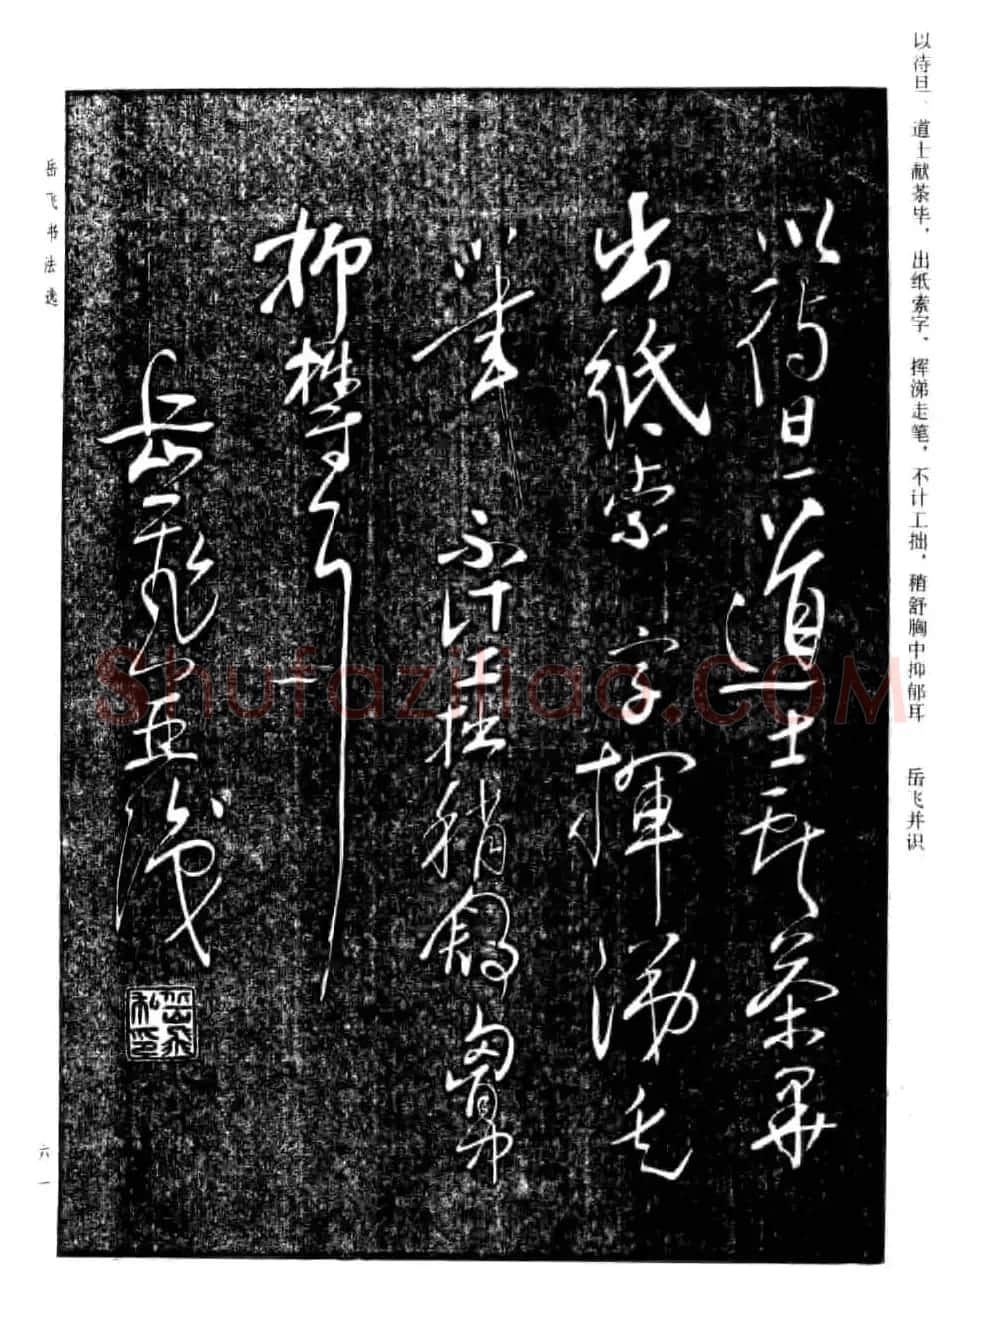 以待旦、道士献茶毕，出纸索字，挥涕走笔，不计工拙，稍舒胸中抑郁耳　岳飞并识
以待旦道士献茶畢
出紙索字揮涕走
筆不計工拙稍舒胸中
抑欝耳
岳飛并識
岳飛私印
岳飞书法选
六一
Shufaziliao.COM